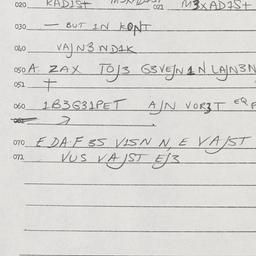 020 RADIST 021 M3XADIST
030 — BUT IN KONT
040 VAJN3 ND1K
050 A. ZAX TOJ3 G3VEJN 1N LAJN3N
051
060 1B3G31PET AJN VOR3T
070 E DA.F 3S V1SN N, E VAJST
072 VUS VAJST EJ3